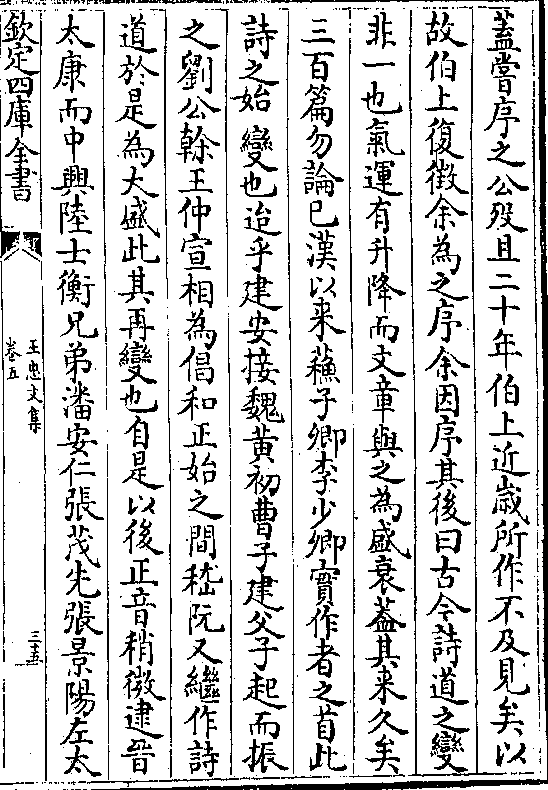 蓋嘗序之公歿且二十年伯上近歳所作不及見矣以
故伯上復徴余為之序余因序其後曰古今詩道之變
非一也氣運有升降而文章與之為盛衰葢其来久矣
三百篇勿論已漢以来蘇子卿李少卿實作者之首此
詩之始變也迨乎建安接魏黄初曹子建父子起而振
之劉公榦王仲宣相為倡和正始之間嵇阮又繼作詩
道於是為大盛此其再變也自是以後正音稍微逮晉
太康而中興陸士衡兄弟潘安仁張茂先張景陽左太
欽定四庫全書
王忠文集
卷五
三十五